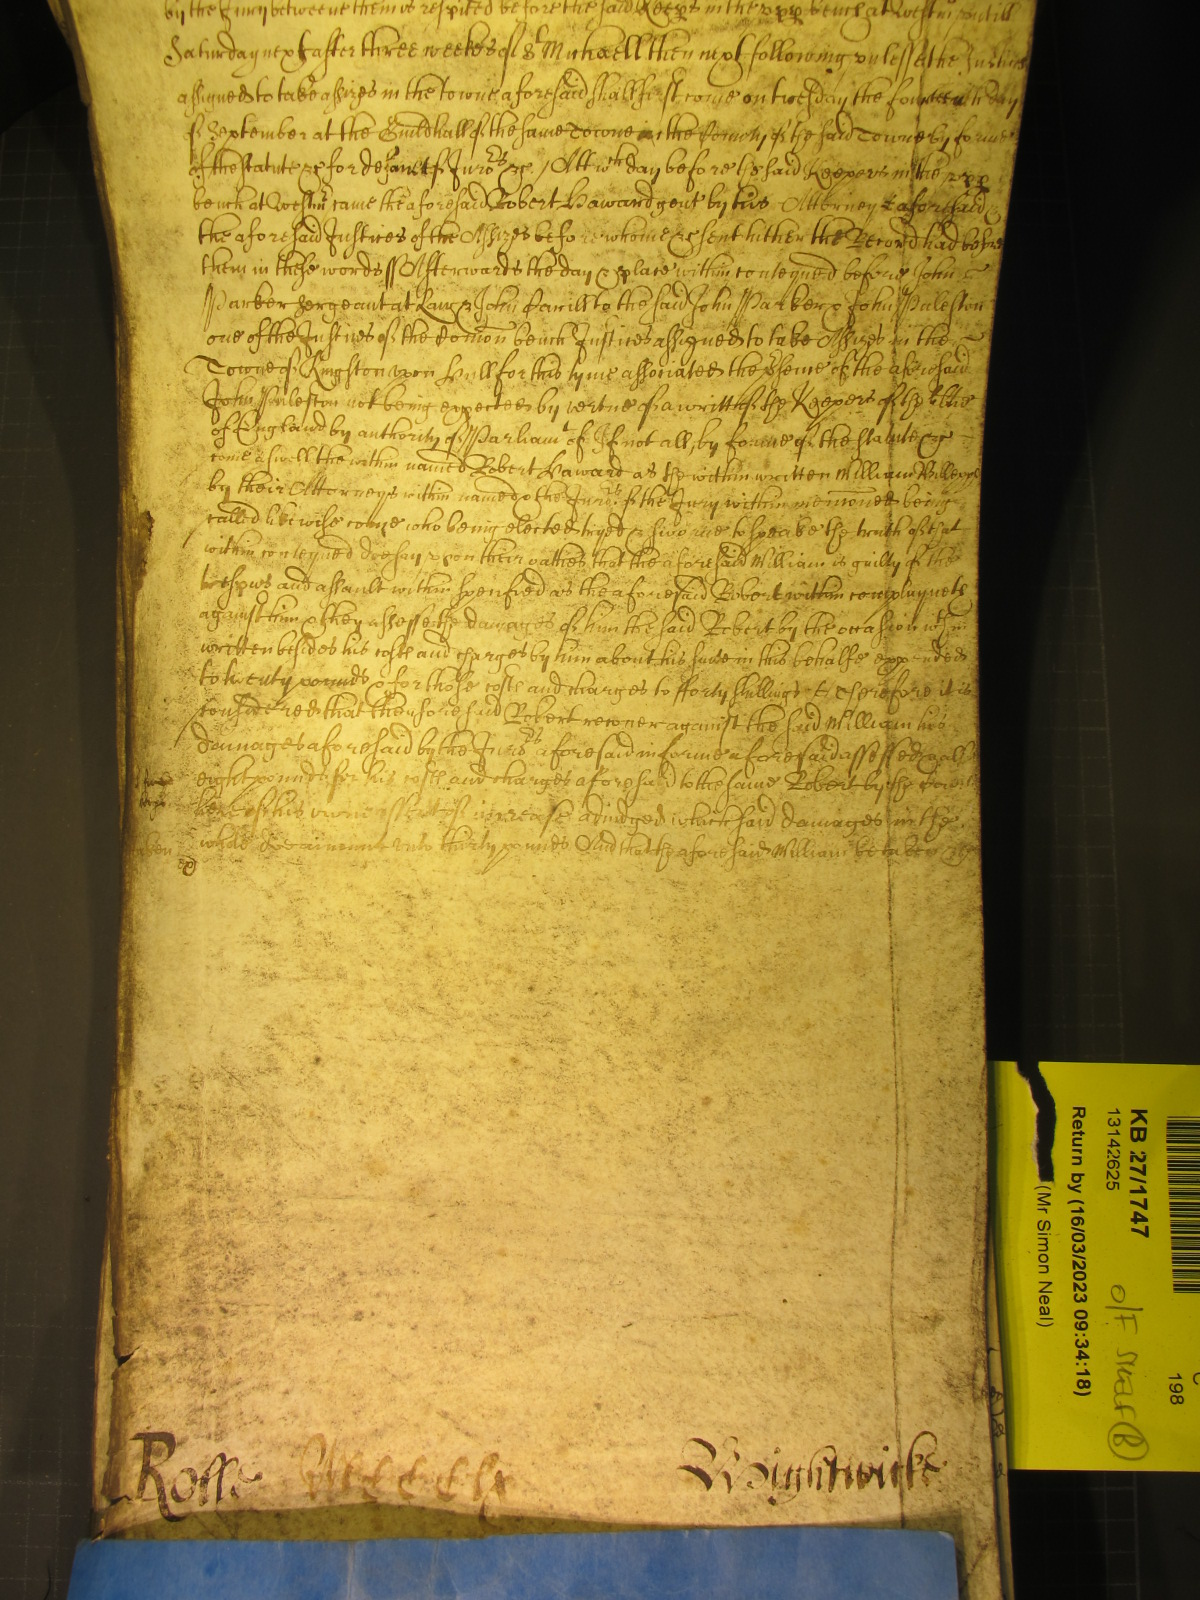 by the Jury betweene them is respited before the said Keeps in the upp bench at Westm untill
Saturday next after three weekes of St Michaell then next following unlesse the Justices
assigned to take assizes in the towne aforesaid shall first come on tuesday the fourteenth day
of September at the Guildhall of the same Towne in the County of the said Towne by forme
of the statute &c for default of Jurrs &c / Att wch day before the said Keepers in the upp
bench at Westmr came the aforesaid Robert Haward gent by his Attorney aforesaid &
the aforesaid Justices of the Assizes before whome &c sent hither the Record had before
them in these words ss Afterwards the day & place within conteyned before John
Parker Sergeant at Law & John to the said John Parker & John Puleston
one of the Justices of the Comon bench Justices assigned to take Assizes in the
Towne of Kingston upon Hull for this tyme associated the psence of the aforesaid
John Puleston not being expected by vertue of a writt of the Keepers of the libtie
of England by authority of Parliamt of Si not all, by forme of the statute &c
come aswell the within named Robert Haward as the within written William
by their Attorneys within named & the Jurrs of the Jury within menconed being
called likewise come who being elected tryed & sworne to speake the truth of that
within conteyned doe say upon their oathes that the aforesaid William is guilty of the
trespas and assault within specified as the aforesaid Robert within complayneth
against him & they assesse the damages of him the said Robert by the occasion within
written besides his costs and charges by him about his suite in this behalfe expended
to twenty pounds & for those costs and charges to fforty shillings & Therefore it is
considered that the aforesaid Robert recover against the said William his
damages aforesaid by the Jurrs aforesaid in forme aforesaid assessed
eight pounds for his costs and charges aforesaid to the same Robert by the Court
here of his owne assent of increase adiudged which said damages in the
whole doe amount unto thirty pounds And that the aforesaid William be taken &c
Rolle
Wightwicke
KB 27/1747
13142625
Return by (16/03/2023 09:34:18)
(Mr Simon Neal)
198